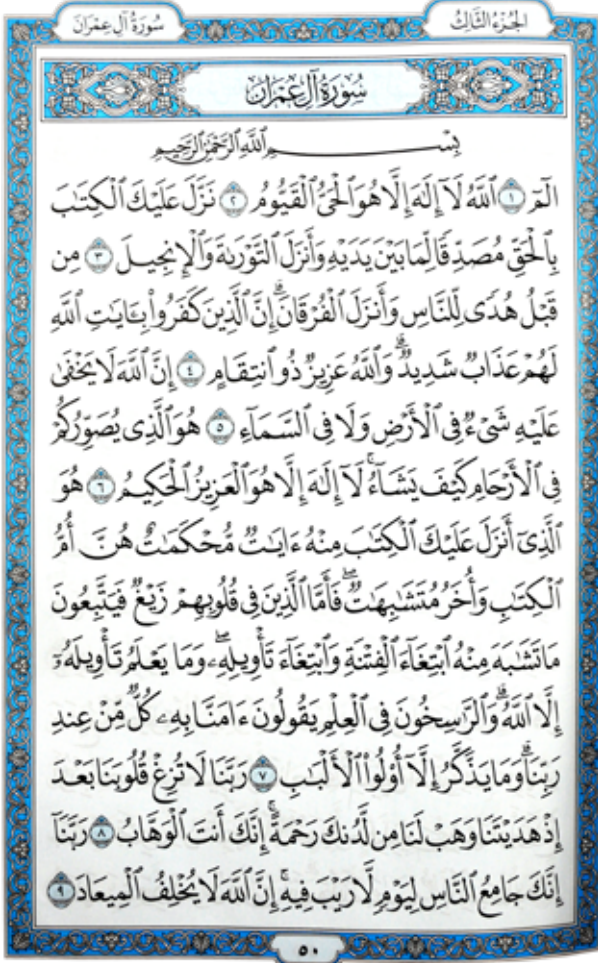 الجزء الثالث
سورة آل عمران
سُورَةُ آلِ عِمْرَانَ
بِسْمِ ٱللَّهِ ٱلرَّحْمَٰنِ ٱلرَّحِيمِ
الٓمٓ ١ ٱللَّهُ لَآ إِلَٰهَ إِلَّا هُوَ ٱلْحَىُّ ٱلْقَيُّومُ ٢ نَزَّلَ عَلَيْكَ ٱلْكِتَٰبَ
بِٱلْحَقِّ مُصَدِّقًا لِّمَا بَيْنَ يَدَيْهِ وَأَنزَلَ ٱلتَّوْرَىٰةَ وَٱلْإِنجِيلَ ٣ مِن
قَبْلُ هُدًى لِّلنَّاسِ وَأَنزَلَ ٱلْفُرْقَانَۗ إِنَّ ٱلَّذِينَ كَفَرُوا۟ بِـَٔايَٰتِ ٱللَّهِ
لَهُمْ عَذَابٌ شَدِيدٌۗ وَٱللَّهُ عَزِيزٌ ذُو ٱنتِقَامٍ ٤ إِنَّ ٱللَّهَ لَا يَخْفَىٰ
عَلَيْهِ شَىْءٌ فِى ٱلْأَرْضِ وَلَا فِى ٱلسَّمَآءِ ٥ هُوَ ٱلَّذِى يُصَوِّرُكُمْ
فِى ٱلْأَرْحَامِ كَيْفَ يَشَآءُۚ لَآ إِلَٰهَ إِلَّا هُوَ ٱلْعَزِيزُ ٱلْحَكِيمُ ٦ هُوَ
ٱلَّذِىٓ أَنزَلَ عَلَيْكَ ٱلْكِتَٰبَ مِنْهُ ءَايَٰتٌ مُّحْكَمَٰتٌ هُنَّ أُمُّ
ٱلْكِتَٰبِ وَأُخَرُ مُتَشَٰبِهَٰتٌۖ فَأَمَّا ٱلَّذِينَ فِى قُلُوبِهِمْ زَيْغٌ فَيَتَّبِعُونَ
مَا تَشَٰبَهَ مِنْهُ ٱبْتِغَآءَ ٱلْفِتْنَةِ وَٱبْتِغَآءَ تَأْوِيلِهِۦۖ وَمَا يَعْلَمُ تَأْوِيلَهُۥٓ
إِلَّا ٱللَّهُۗ وَٱلرَّٰسِخُونَ فِى ٱلْعِلْمِ يَقُولُونَ ءَامَنَّا بِهِۦ كُلٌّ مِّنْ عِندِ
رَبِّنَاۗ وَمَا يَذَّكَّرُ إِلَّآ أُو۟لُوا۟ ٱلْأَلْبَٰبِ ٧ رَبَّنَا لَا تُزِغْ قُلُوبَنَا بَعْدَ
إِذْ هَدَيْتَنَا وَهَبْ لَنَا مِن لَّدُنكَ رَحْمَةًۚ إِنَّكَ أَنتَ ٱلْوَهَّابُ ٨ رَبَّنَآ
إِنَّكَ جَامِعُ ٱلنَّاسِ لِيَوْمٍ لَّا رَيْبَ فِيهِۚ إِنَّ ٱللَّهَ لَا يُخْلِفُ ٱلْمِيعَادَ ٩
٥٠